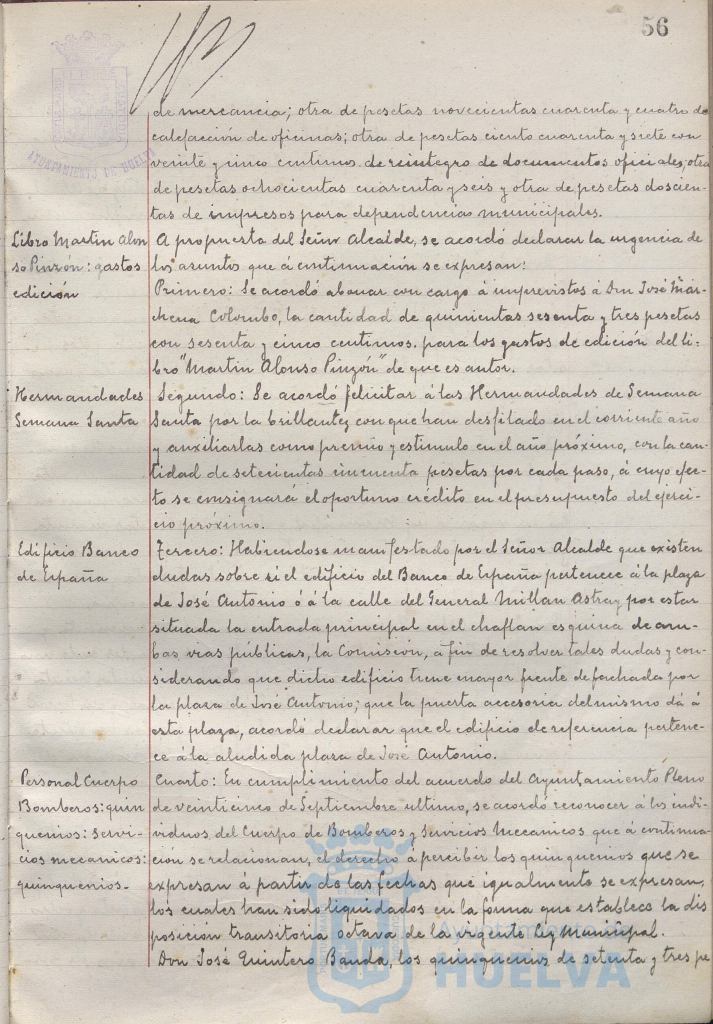 56
AYUNTAMIENTO DE HUELVA
de mercancia; otra de pesetas novecientas cuarenta y cuatro de
calefacción de oficinas; otra de pesetas ciento cuarenta y siete con
veinte y cinco centimos de reintegro de documentos oficiales; otra
de pesetas ochocientas cuarenta y seis y otra de pesetas doscien-
tas de impresos para dependencias municipales.
Libro Martin Alon
so Pinzón: gastos
edición
A propuesta del Señor Alcalde, se acordó declarar la urgencia de
los asuntos que á continuación se expresan:
Primero: Se acordó abonar con cargo á imprevistos á Don José Mar-
chena Colombo, la cantidad de quinientas sesenta y tres pesetas
con sesenta y cinco centimos. para los gastos de edición del li-
bro "Martin Alonso Pinzón" de que es autor.
Hermandades
Semana Santa
Segundo: Se acordó felicitar á las Hermandades de Semana
Santa por la brillantez con que han desfilado en el corriente año
y auxiliarlas como premio y estimulo en el año próximo, con la can-
tidad de setecientas cincuenta pesetas por cada paso, á cuyo efec-
to se consignará el oportuno crédito en el presupuesto del ejerci-
cio próximo.
Edificio Banco
de España
Tercero: Habiendose manifestado por el Señor Alcalde que existen
dudas sobre si el edificio del Banco de España pertenece á la plaza
de José Antonio ó á la calle del General Millan Astray por estar
situada la entrada principal en el chaflan esquina de am-
bas vias públicas, la Comisión, a fin de resolver tales dudas y con-
siderando que dicho edificio tiene mayor frente de fachada por
la plaza de José Antonio; que la puerta accesoria del mismo dá á
esta plaza, acordó declarar que el edificio de referencia pertene-
ce á la aludida plaza de José Antonio.
Personal Cuerpo
Bomberos: quin
quenios: Servi-
cios mecanicos:
quinquenios.-
Cuarto: En cumplimiento del acuerdo del Ayuntamiento Pleno
de veinticinco de Septiembre ultimo, se acordó reconocer á los indi-
viduos del Cuerpo de Bomberos y Servicios Mecanicos que á continua-
ción se relacionan, el derecho á percibir los quinquenios que se
expresan á partir de las fechas que igualmente se expresan,
los cuales han sido liquidados en la forma que establece la dis
posición transitoria octava de la vigente Ley Municipal.
Don José Quintero Banda, los quinquenios de setenta y tres pe
Ayuntamiento
HUELVA